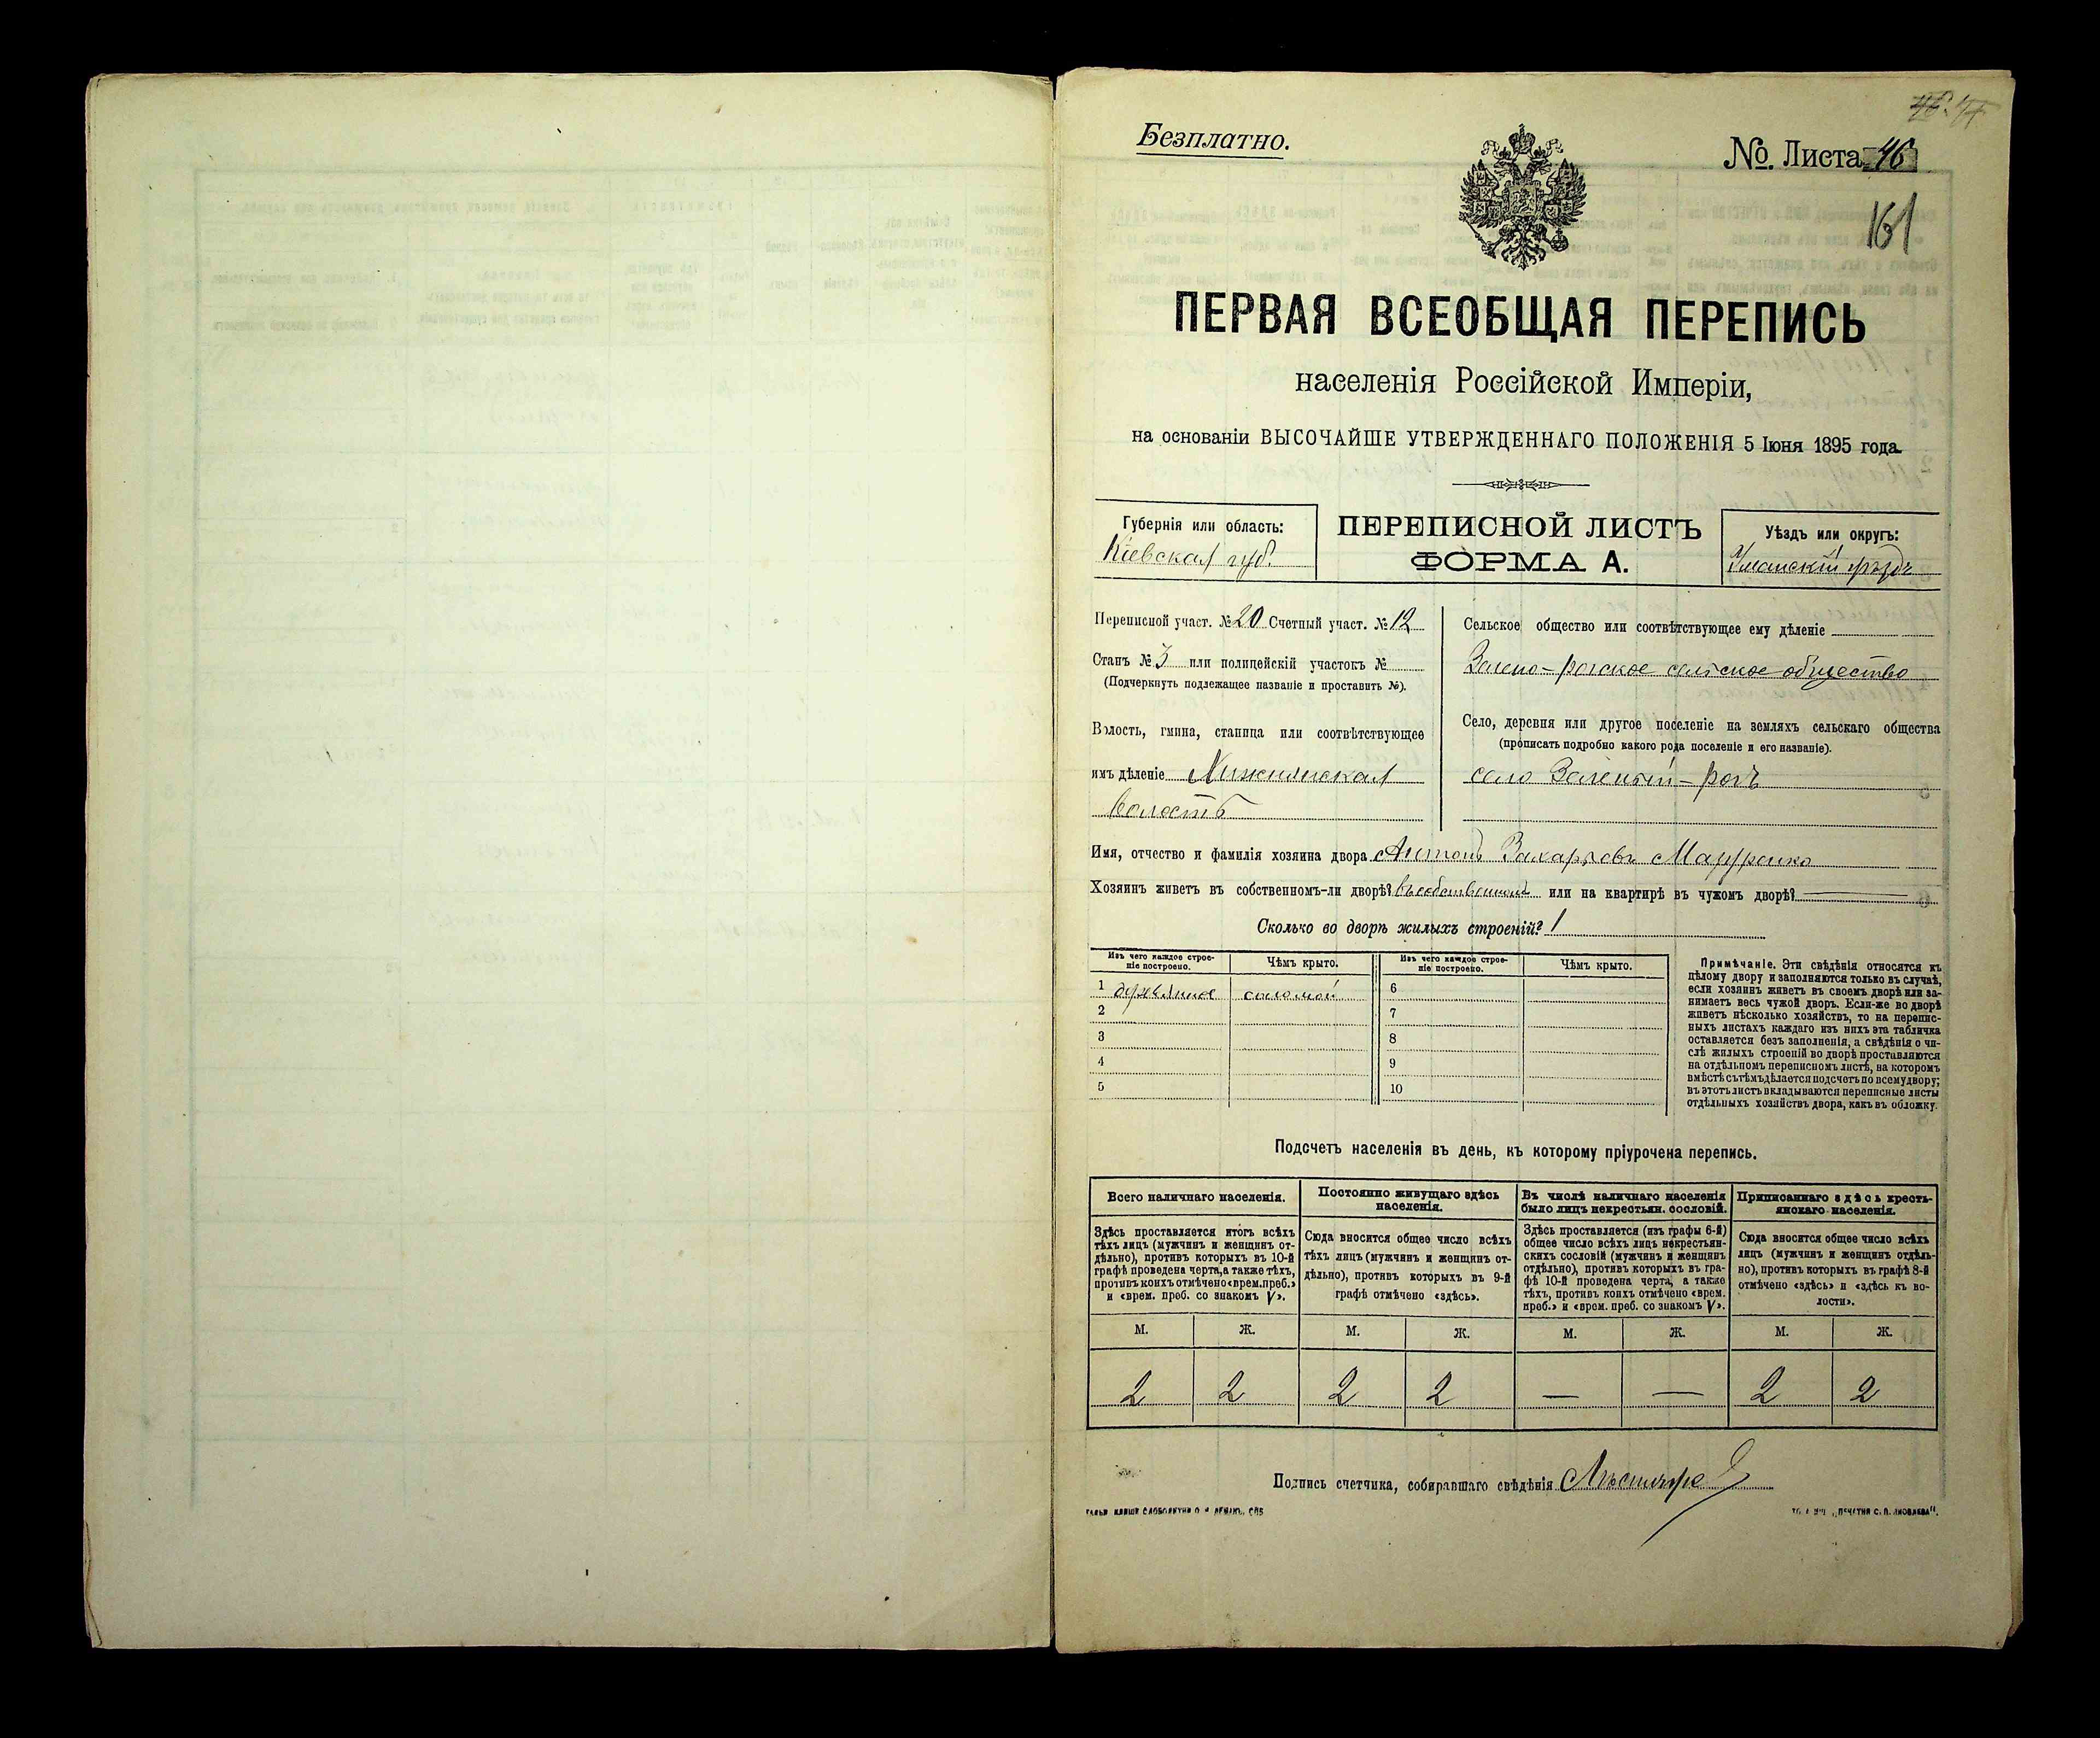 Безплатно.
№. Листа 46
161
ПЕРВАЯ ВСЕОБЩАЯ ПЕРЕПИСЬ
населенія Россійской Имперіи,
на основаніи ВЫСОЧАЙШЕ УТВЕРЖДЕННАГО ПОЛОЖЕНІЯ 5 Іюня 1895 года.
Губернія или область:
Кіевская губ.
ПЕРЕПИСНОЙ ЛИСТЪ
ФОРМА А.
Уѣздъ или округъ:
Уманскій уѣздъ
Переписной участ. № 20 Счетный участ. № 12
Станъ № 3 или полицейскій участокъ №
(Подчеркнуть подлежащее названіе и проставить №).
Волость, гмина, станица или соотвѣтствующее
имъ дѣленіе
волость
Сельское общество или соотвѣтствующее ему дѣленіе
Зелено-рогское сельское общество
Село, деревня или другое поселеніе на земляхъ сельскаго общества
(прописать подробно какого рода поселеніе и его названіе).
село Зеленый-рогъ
Имя, отчество и фамилія хозяина двора Антонъ Захарьевъ
Хозяинъ живетъ въ собственномъ-ли дворѣ? въ собственномъ или на квартирѣ въ чужомъ дворѣ?
Сколько во дворѣ жилыхъ строеній? 1
Изъ чего каждое строеніе построено. Чѣмъ крыто. Изъ чего каждое строеніе построено. Чѣмъ крыто.
1 соломой 6
2 7
3 8
4 9
5 10
Примѣчаніе. Эти свѣдѣнія относятся къ
цѣлому двору и заполняются только въ случаѣ,
если хозяинъ живетъ въ своемъ дворѣ или за-
нимаетъ весь чужой дворъ. Если-же во дворѣ
живетъ нѣсколько хозяйствъ, то на перепис-
ныхъ листахъ каждаго изъ нихъ эта табличка
оставляется безъ заполненія, а свѣдѣнія о чи-
слѣ жилыхъ строеній во дворѣ проставляются
на отдѣльномъ переписномъ листѣ, на которомъ
вмѣстѣ съ тѣмъ дѣлается подсчетъ по всему двору;
въ этотъ листъ вкладываются переписные листы
отдѣльныхъ хозяйствъ двора, какъ въ обложку.
Подсчетъ населенія въ день, къ которому пріурочена перепись.
Всего наличнаго населенія.
Здѣсь проставляется итогъ всѣхъ
тѣхъ лицъ (мужчинъ и женщинъ от-
дѣльно), противъ которыхъ въ 10-й
графѣ проведена черта, а также тѣхъ,
противъ коихъ отмѣчено «врем. преб.»
и «врем. преб. со знакомъ V».
Постоянно живущаго здѣсь
населенія.
Сюда вносится общее число всѣхъ
тѣхъ лицъ (мужчинъ и женщинъ от-
дѣльно), противъ которыхъ въ 9-й
графѣ отмѣчено «здѣсь».
Въ числѣ наличнаго населенія
было лицъ некрестьян. сословій.
Здѣсь проставляется (изъ графы 6-й)
общее число всѣхъ лицъ некрестьян-
скихъ сословій (мужчинъ и женщинъ
отдѣльно), противъ которыхъ въ гра-
фѣ 10-й проведена черта, а также
тѣхъ, противъ коихъ отмѣчено «врем.
преб.» и «врем. преб. со знакомъ V».
Приписаннаго здѣсь кресть-
янскаго населенія.
Сюда вносится общее число всѣхъ
лицъ (мужчинъ и женщинъ отдѣль-
но), противъ которыхъ въ графѣ 8-й
отмѣчено «здѣсь» и «здѣсь къ во-
лости».
М. Ж. М. Ж. М. Ж. М. Ж.
2 2 2 2 — — 2 2
Подпись счетчика, собиравшаго свѣдѣнія